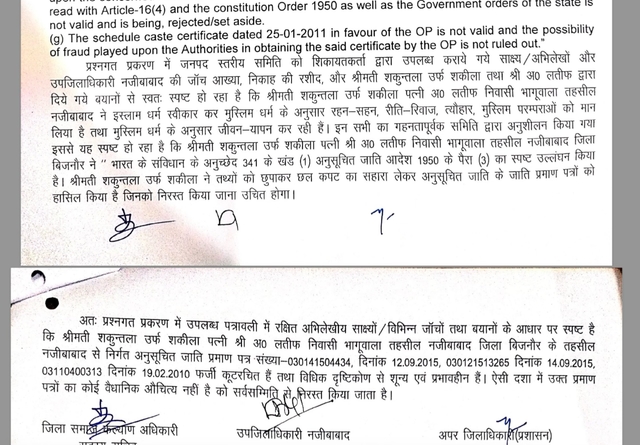 read with Article-16(4) and the constitution Order 1950 as well as the Government orders of the state is
not valid and is being, rejected/set aside.
(g) The schedule caste certificate dated 25-01-2011 in favour of the OP is not valid and the possibility
of fraud played upon the Authorities in obtaining the said certificate by the OP is not ruled out."
प्रश्नगत प्रकरण में जनपद स्तरीय समिति को शिकायतकर्ता द्वारा उपलब्ध कराये गये साक्ष्य/अभिलेखों और
उपजिलाधिकारी नजीबाबाद की जाँच आख्या, निकाह की रशीद, और श्रीमती शकुन्तला उर्फ शकीला तथा श्री अ0 लतीफ द्वारा
दिये गये बयानों से स्वतः स्पष्ट हो रहा है कि श्रीमती शकुन्तला उर्फ शकीला पत्नी श्री अ0 लतीफ निवासी भागूवाला तहसील
नजीबाबाद ने इस्लाम धर्म स्वीकार कर मुस्लिम धर्म के अनुसार रहन-सहन, रीति-रिवाज, त्यौहार, मुस्लिम परम्पराओं को मान
लिया है तथा मुस्लिम धर्म के अनुसार जीवन-यापन कर रही हैं। इन सभी का गहनतापूर्वक समिति द्वारा अनुशीलन किया गया
इससे यह स्पष्ट हो रहा है कि श्रीमती शकुन्तला उर्फ शकीला पत्नी श्री अ0 लतीफ निवासी भागूवाला तहसील नजीबाबाद जिला
बिजनौर ने " भारत के संविधान के अनुच्छेद 341 के खंड (1) अनुसूचित जाति आदेश 1950 के पैरा (3) का स्पष्ट उल्लंघन किया
है। श्रीमती शकुन्तला उर्फ शकीला ने तथ्यों को छुपाकर छल कपट का सहारा लेकर अनुसूचित जाति के जाति प्रमाण पत्रों को
हासिल किया है जिनको निरस्त किया जाना उचित होगा।
अतः प्रश्नगत प्रकरण में उपलब्ध पत्रावली में रक्षित अभिलेखीय साक्ष्यों/विभिन्न जाँचों तथा बयानों के आधार पर स्पष्ट है
कि श्रीमती शकुन्तला उर्फ शकीला पत्नी श्री अ0 लतीफ निवासी भागूवाला तहसील नजीबाबाद जिला बिजनौर के तहसील
नजीबाबाद से निर्गत अनुसूचित जाति प्रमाण पत्र संख्या-030141504434, दिनांक 12.09.2015, 030121513265 दिनांक 14.09.2015,
03110400313 दिनांक 19.02.2010 फर्जी कूटरचित हैं तथा विधिक दृष्टिकोण से शून्य एवं प्रभावहीन हैं। ऐसी दशा में उक्त प्रमाण
पत्रों का कोई वैधानिक औचित्य नहीं है को सर्वसम्मति से निरस्त किया जाता है।
जिला समाज कल्याण अधिकारी उपजिलाधिकारी नजीबाबाद अपर जिलाधिकारी(प्रशासन)